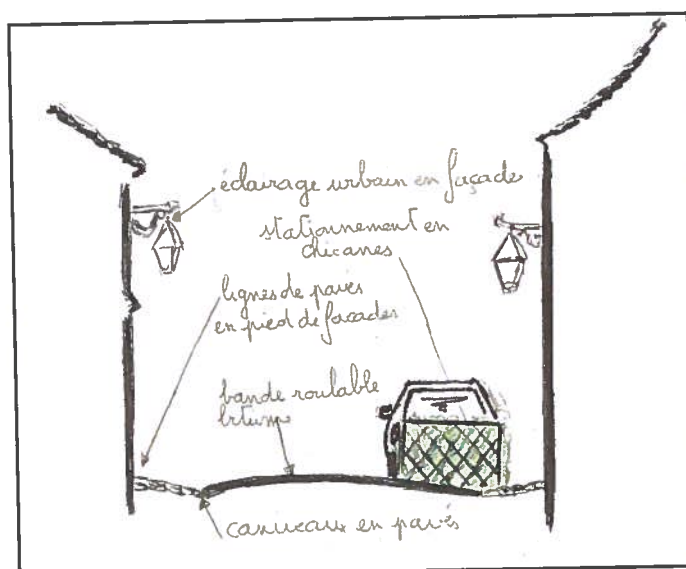 éclairage urbain en façade
stationnement en
chicanes
lignes de pavés
en pied de façades
bande roulable
bitume
caniveaux en pavés